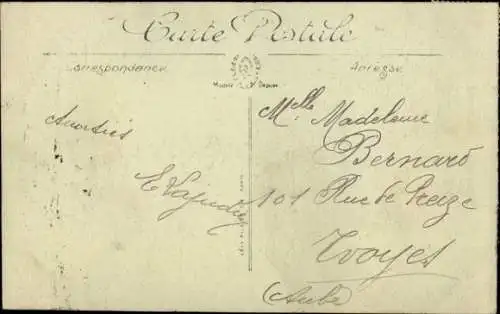 Carte Postale
Correspondance
Adresse
Amitiés
Melle Madeleine
Bernard
101 Rue de Preize
Troyes
(Aube)